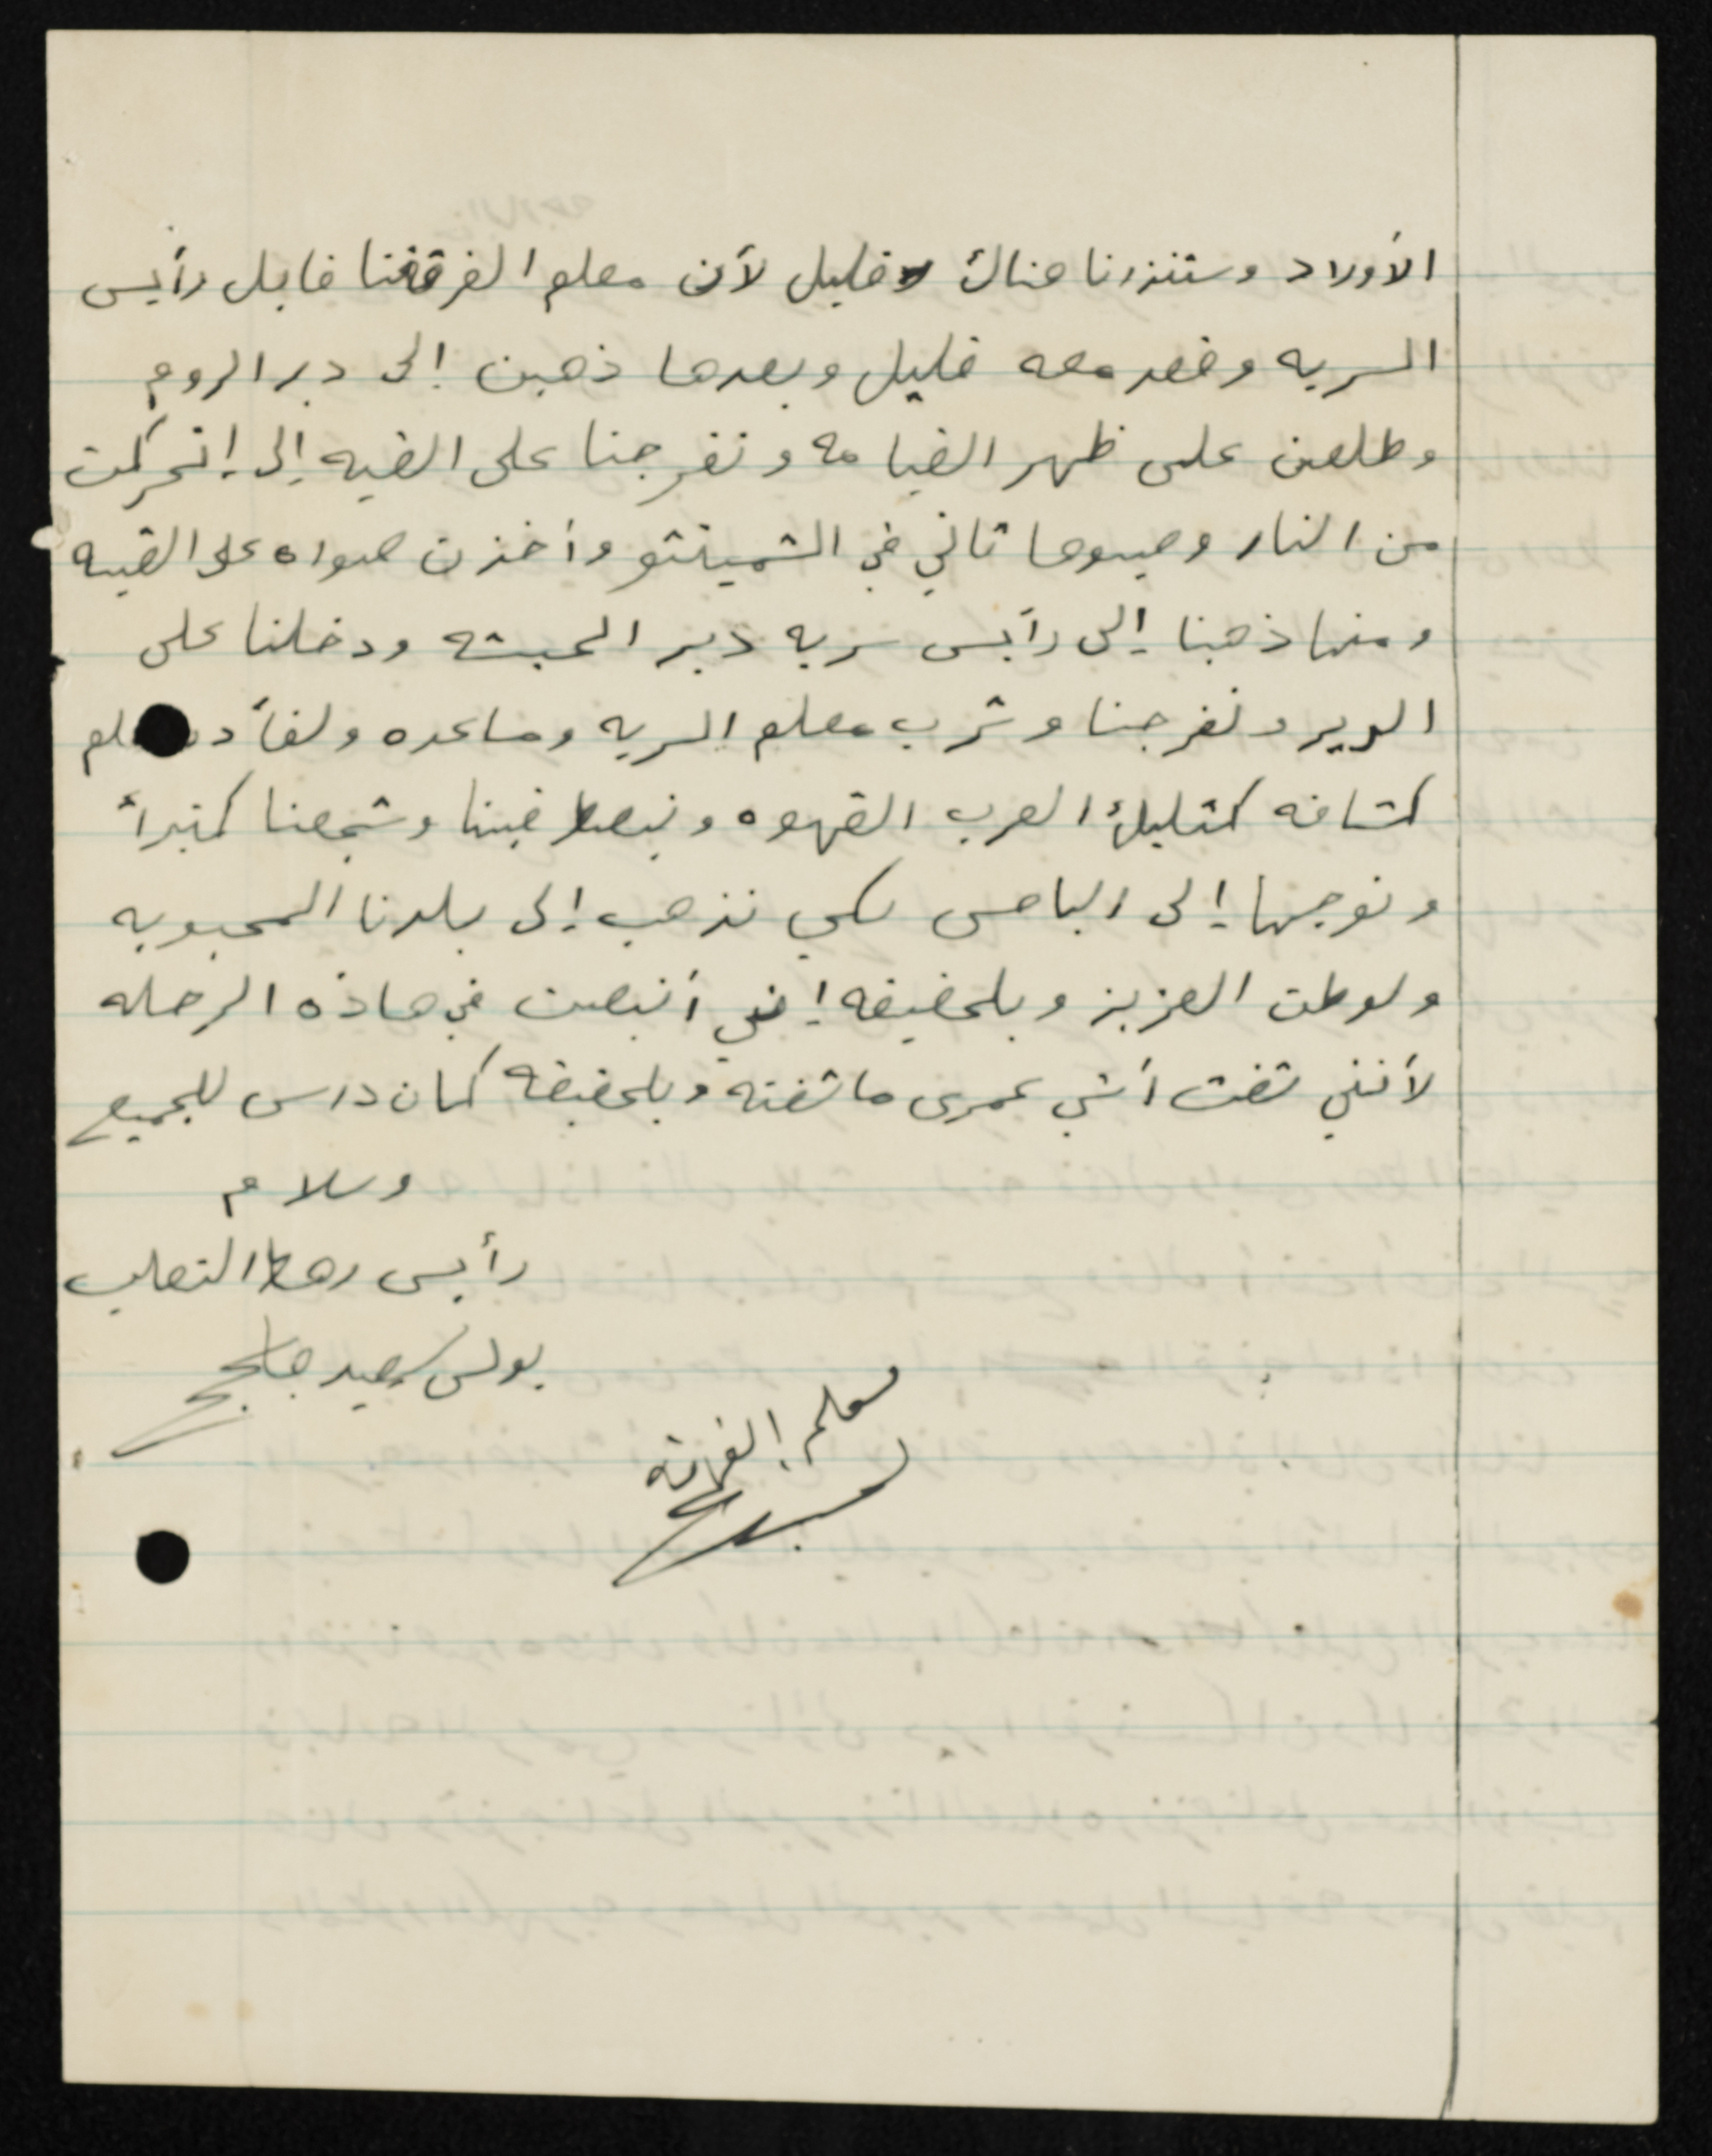 الأولاد وستنزرنا هناك قليل لأن معلم الفرقتنا قابل رأيس
السريه وقعد معه قليل وبعدها ذهبن إلى دير الروم
وطلعن على ظهر القيامه وتفرجنا على القبه إلى إنحركت
من النار وصبوها تاني في الشمينتو وأخذن صواره على القبه
ومنها ذهبنا إلى رأيس سريه دير الحبشه ودخلنا على
الدير وتفرجنا وشرب معلم السريه ومساعده
كشافه كمثليك العرب القهوه ونبصط فينا وشجعنا كثيراً
وتوجهنا إلى الباص لكي نذهب إلى بلدنا المحبوبه
ولوطن العزيز وبلحقيقه إنني أنبصت في هاذه الرحله
لأنني شفت أشي عمرى ما شفته وبلحقيقه كمان دارس للجميع
وسلام
رأيس رهط الثعلب
بولس سعيد
معلم الفرقة